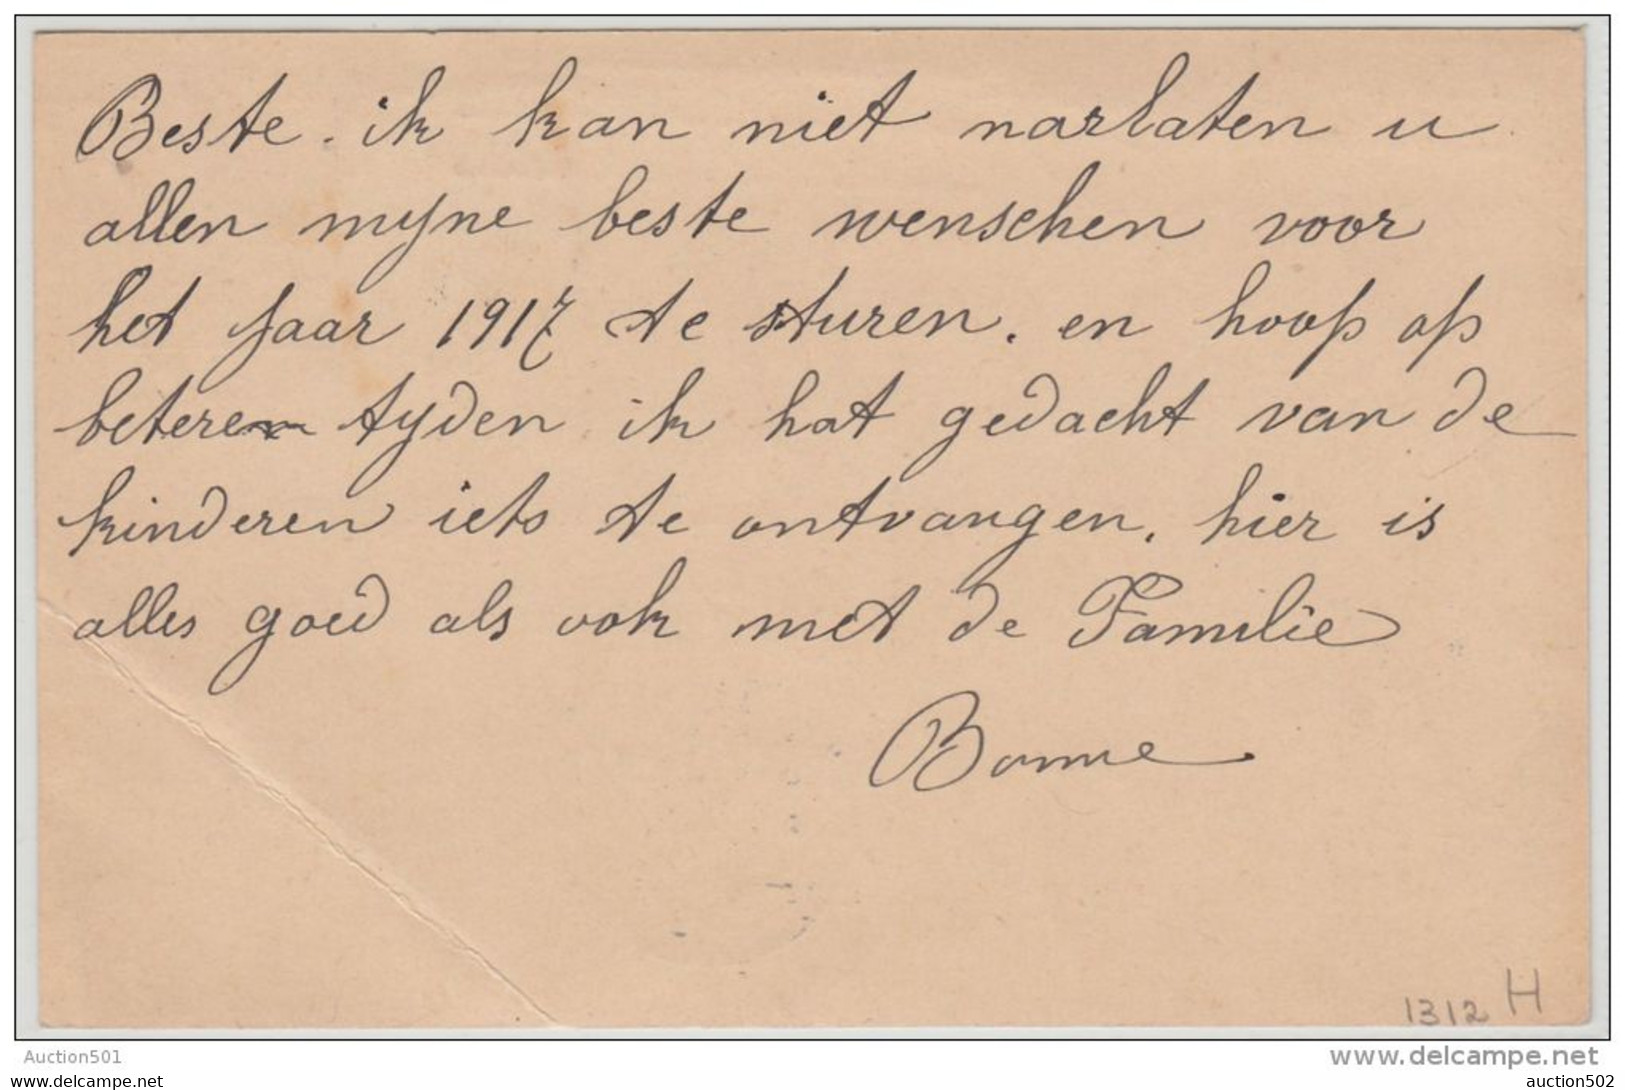 Beste. ik kan niet narlaten u
allen myne beste wenschen voor
het Jaar 1917 te sturen. en hoop op
beteren tyden ik hat gedacht van de
kinderen iets te ontvangen. hier is
alles goed als ook met de Familie
Bonne
1312 H
Auction501
www.delcampe.net
auction501.delcampe.com
auction502